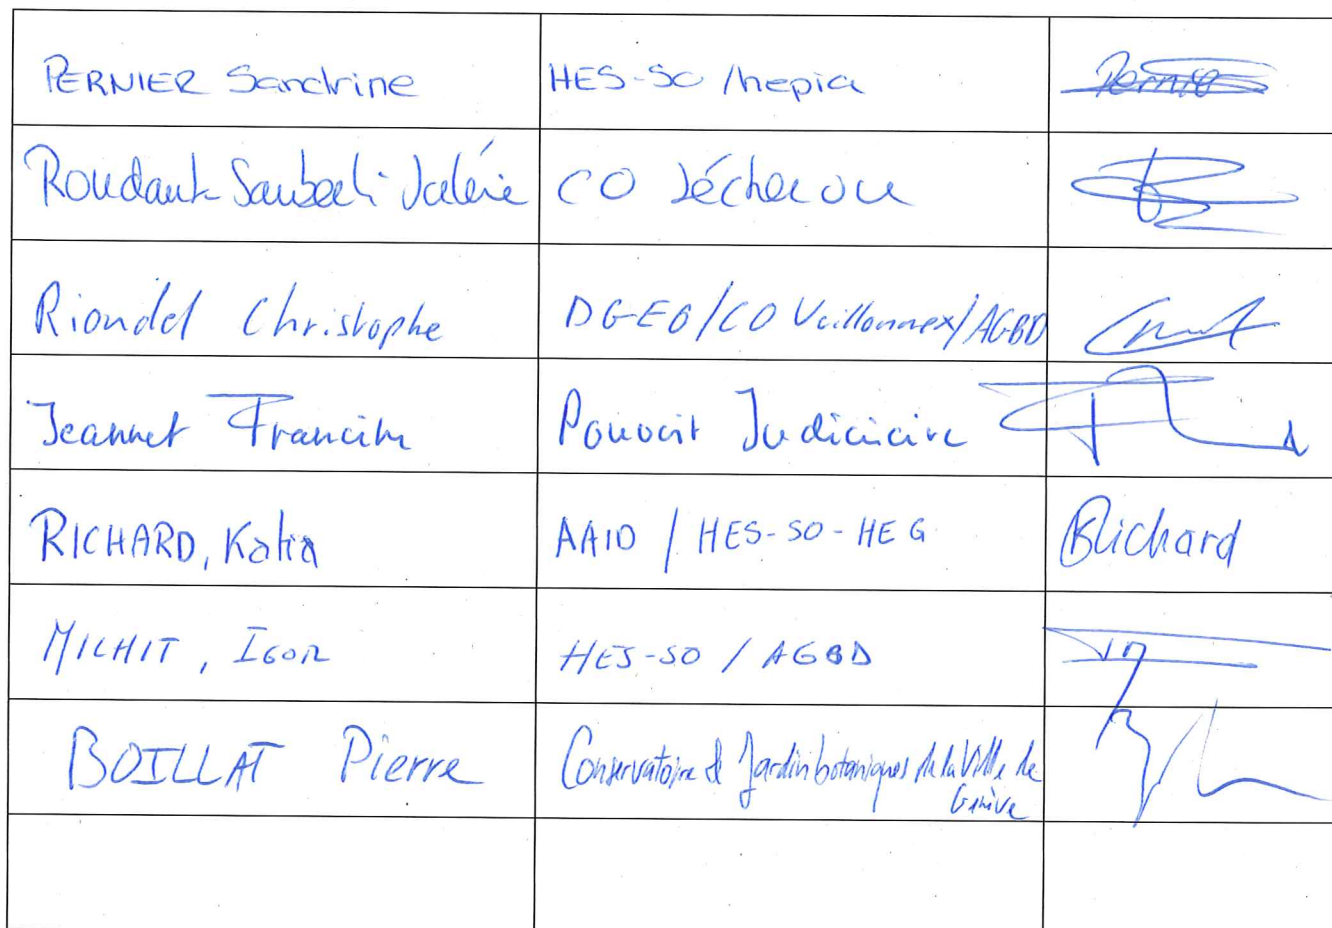 PERNIER Sandrine HES-SO / hepia Pernier
Roudaut-Sauberli Valérie CO Sécheron
Riondel Christophe DGEO/CO Vuillonnex/AGBD
Jeannet Francine Pouvoir Judiciaire
RICHARD, Katia AAID / HES-SO-HEG Richard
MICHIT, IGOR HES-SO / AGBD
BOILLAT Pierre Conservatoire & Jardin botaniques de la Ville de
Genève